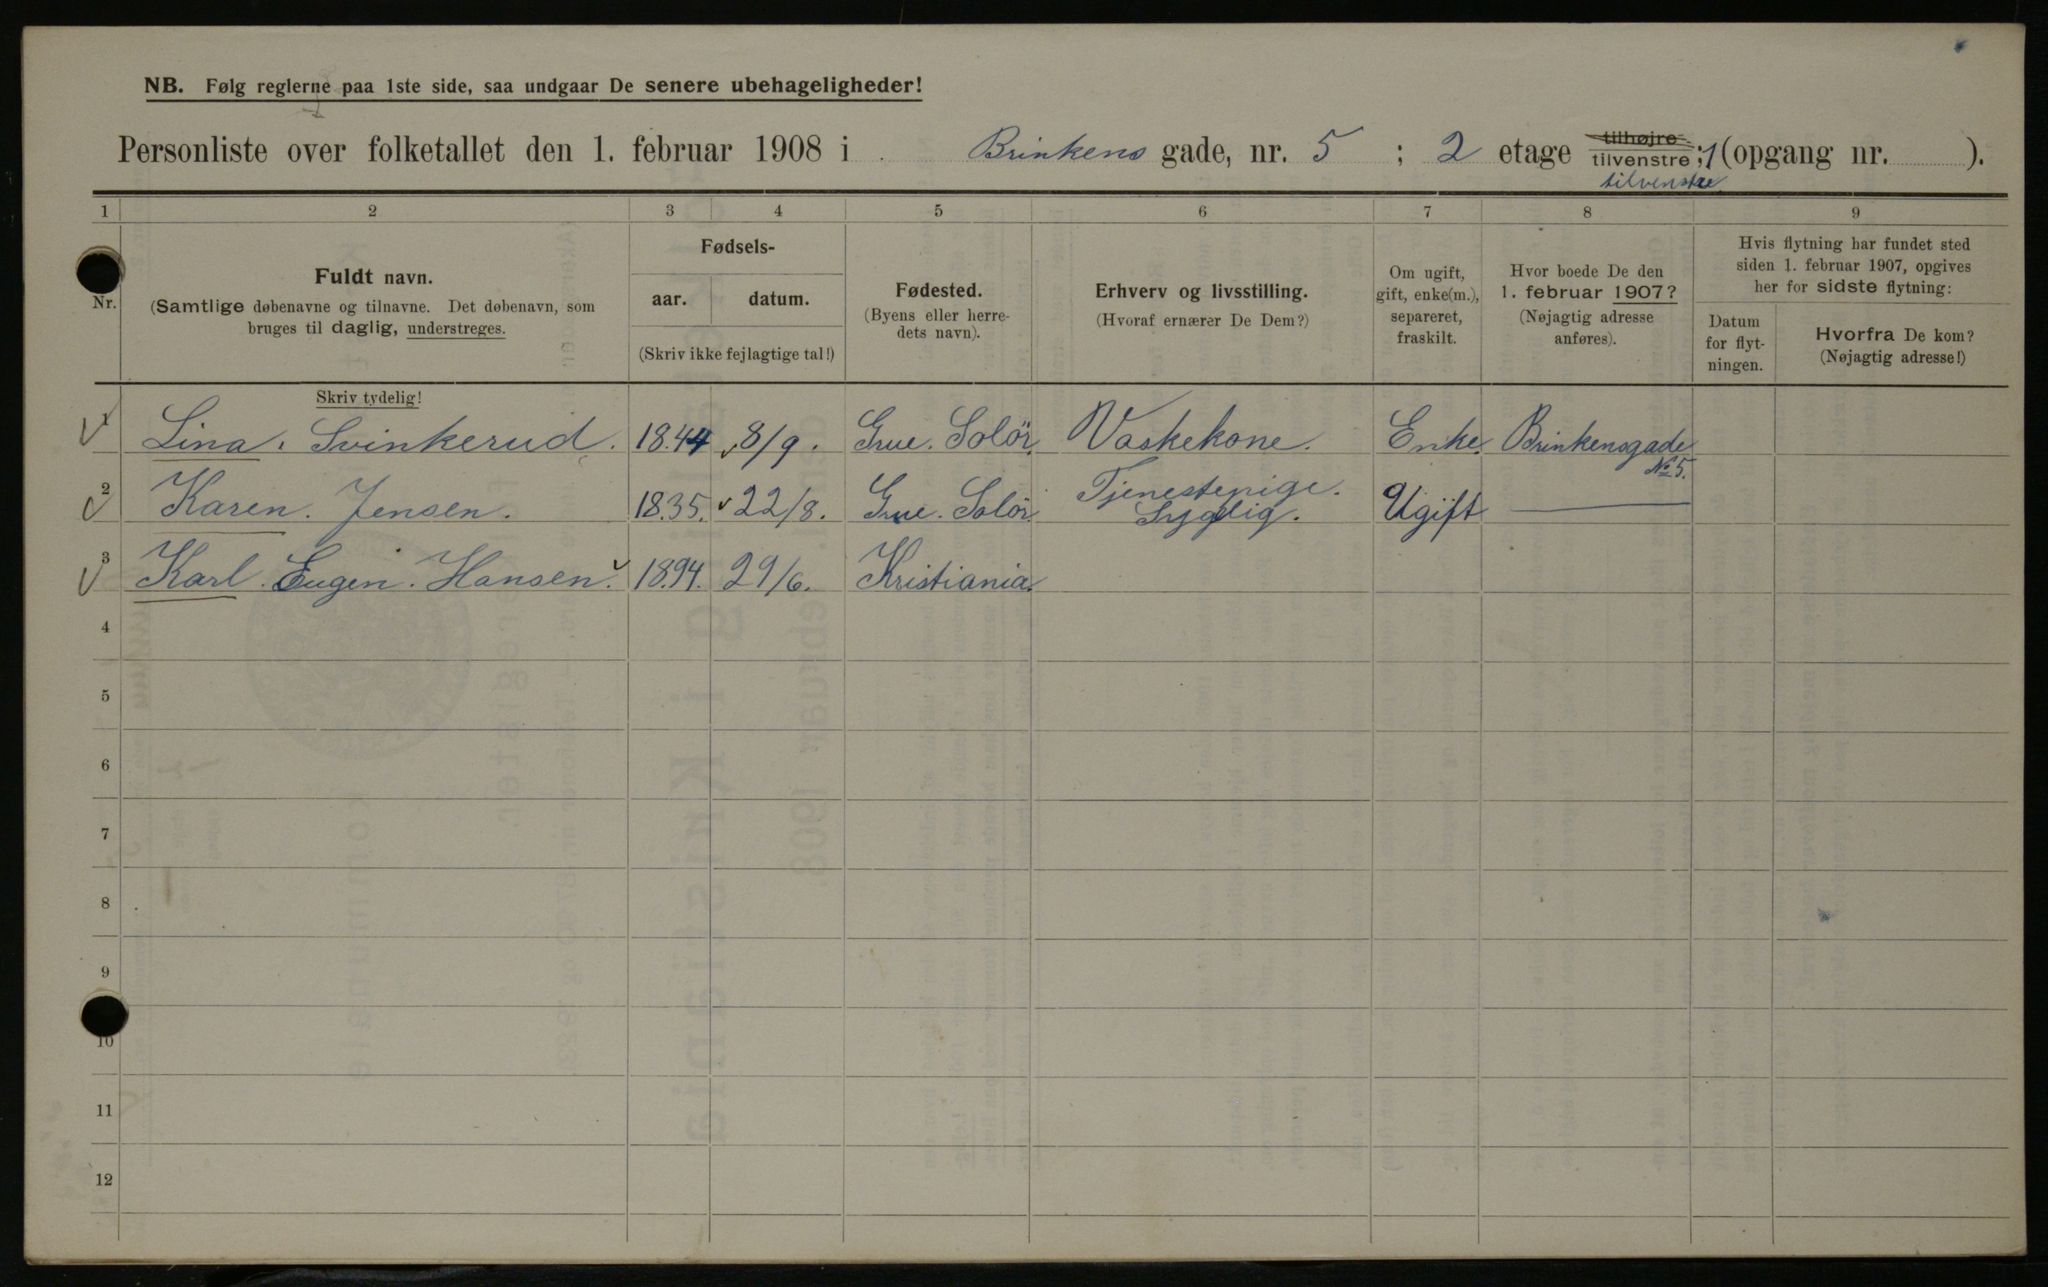 NB. Følg reglerne paa 1ste side, saa undgaar De senere ubehageligheder!
Personliste over folketallet den 1. februar 1908 i Brinkens gade, nr. 5 ; 2 etage tilhøjre tilvenstre; 1 (opgang nr. ).
tilvenstre
1 2 3 4 5 6 7 8 9
Nr.
Fuldt navn.
(Samtlige døbenavne og tilnavne. Det døbenavn, som
bruges til daglig, understreges.
Fødsels-
aar. datum.
(Skriv ikke fejlagtige tal!)
Fødested.
(Byens eller herre-
dets navn).
Erhverv og livsstilling.
(Hvoraf ernærer De Dem?)
Om ugift,
gift, enke(m.),
separeret,
fraskilt.
Hvor boede De den
1. februar 1907?
(Nøjagtig adresse
anføres).
Hvis flytning har fundet sted
siden 1. februar 1907, opgives
her for sidste flytning:
Datum
for flyt-
ningen.
Hvorfra De kom?
(Nøjagtig adresse!)
Skriv tydelig!
1 Lina. Svinkerud. 18.44 8/9. Grue. Solör. Vaskekone. Enke. Brinkensgade
No 5.
2 Karen. Jensen. 18.35. 22/8. Grue. Solör. Tjenestepige. Ugift
Syglig.
3 Karl. Eugen. Hansen 18.94. 29/6. Kristiania.
4
5
6
7
8
9
10
11
12